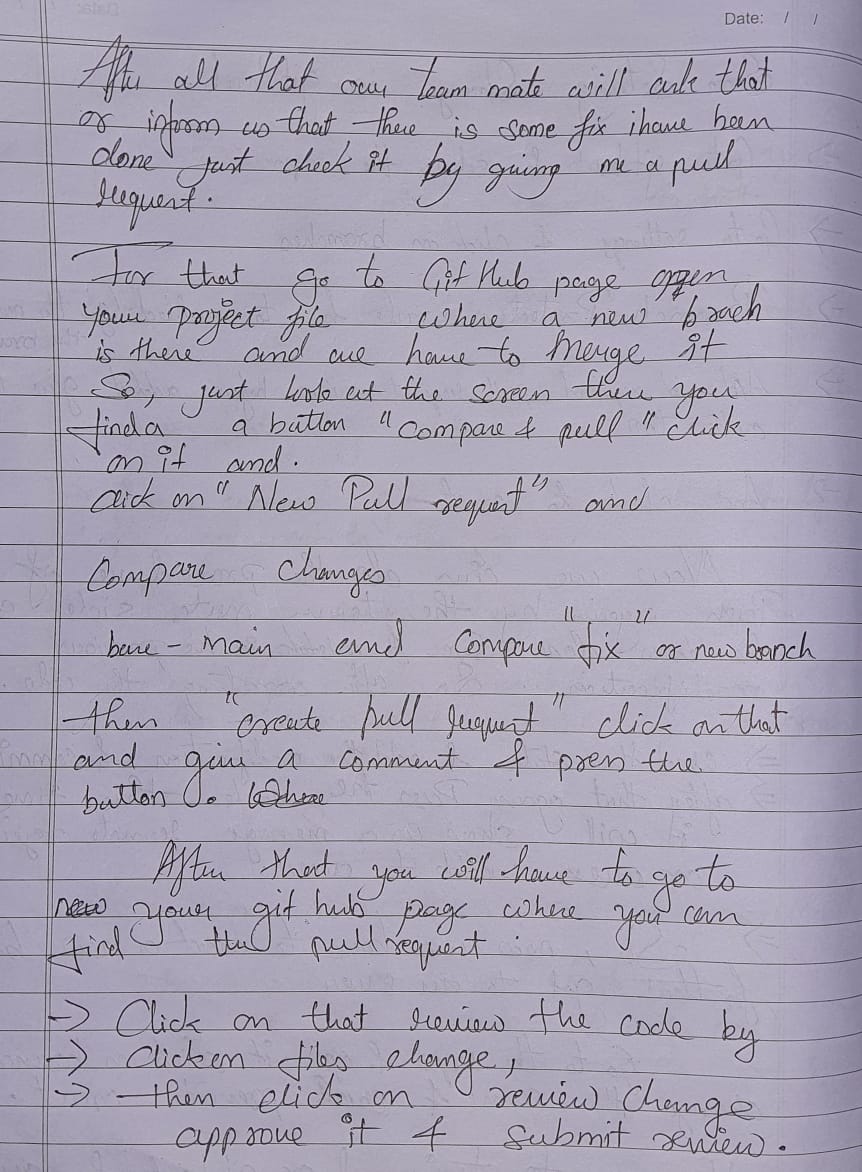 Date: / /
After all that our team mate will ask that
or inform us that there is some fix ihave been
done just check it by giving me a pull
request.
For that go to GitHub page open
your project file where a new brach
is there and we have to merge it
So, just look at the screen there you
finda a button "compare & pull" click
on it and.
click on "New Pull request" and
Compare changes
base - main and compare "fix" or new branch
then "create pull request" click on that
and give a comment & press the
button. Where
After that you will have to go to
new your git hub page where you can
find the pull request
-> Click on that review the code by
-> Click on files change,
-> then click on review change
approve it & submit review.